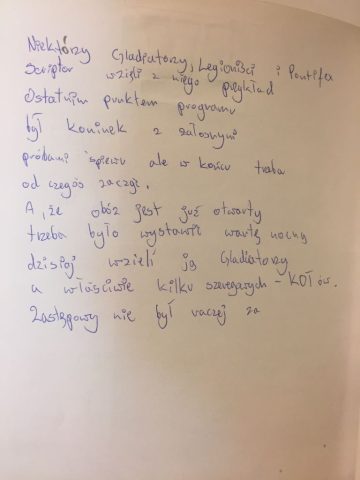 Niektórzy Gladiatorzy, Legioniści i Pontifex
Scriptor wzięli z niego przykład
Ostatnim punktem programu
był kominek z żałosnymi
próbami śpiewu ale w końcu trzeba
od czegoś zacząć.
A, że obóz jest już otwarty
trzeba było wystawić wartę nocną
dzisiaj wzięli ją Gladiatorzy
a właściwie kilku szeregowych - KOT ów.
Zastępowy nie był raczej za